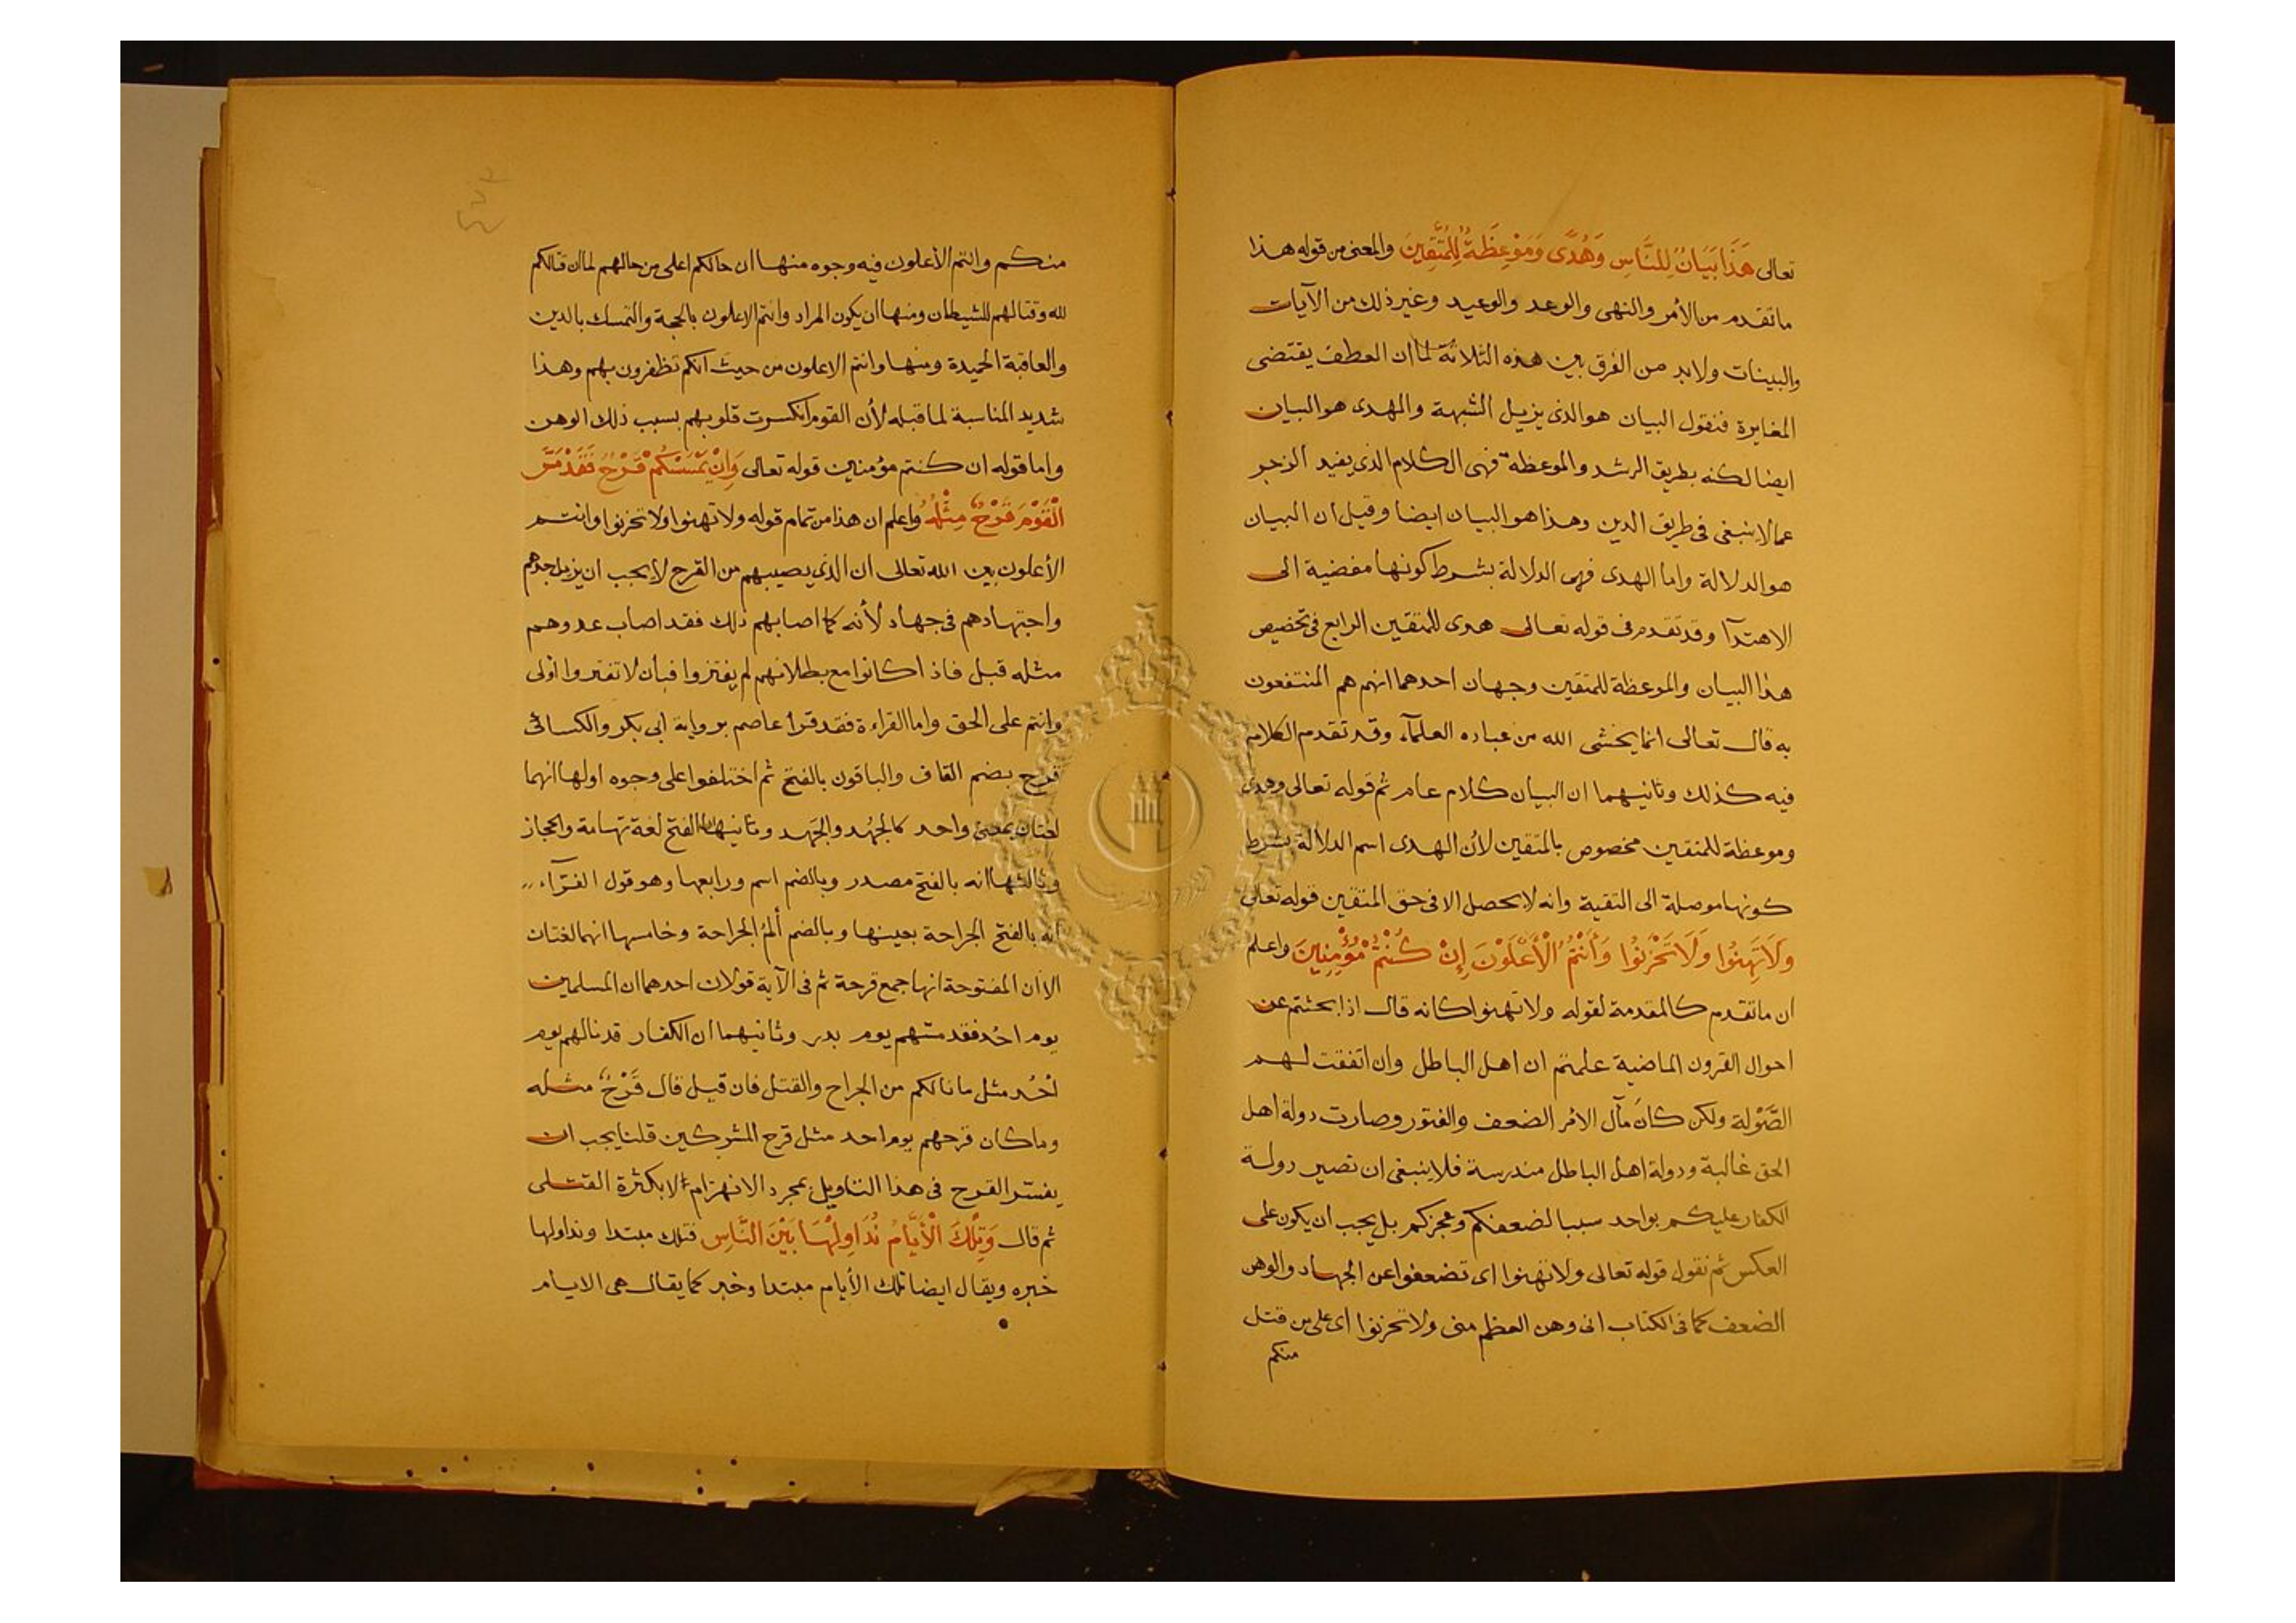 تعالى هَذَا بَيَانٌ لِلنَّاسِ وَهُدًى وَمَوْعِظَةٌ لِلْمُتَّقِينَ والمعنى من قوله هذا
ما تقدم من الأمر والنهى والوعد والوعيد وغير ذلك من الآيات
والبينات ولابد من الفرق بين هذه الثلاثة لما ان العطف يقتضى
المغايرة فنقول البيان هو الذى يزيل الشبهة والهدى هو البيان
ايضا لكنه بطريق الرشد والموعظة فهى الكلام الذى يفيد الزجر
عما لا ينبغى فى طريق الدين وهذا هو البيان ايضا وقيل ان البيان
هو الدلالة واما الهدى فهى الدلالة بشرط كونها مفضية الى
الاهتدآ وقد تقدم فى قوله تعالى هدى للمتقين الرابع فى تخصيص
هذا البيان والموعظة للمتقين وجهان احدهما انهم هم المنتفعون
به قال تعالى انما يخشى الله من عباده العلمآء وقد تقدم الكلام
فيه كذلك وثانيهما ان البيان كلام عام ثم قوله تعالى وهدى
وموعظة للمتقين مخصوص بالمتقين لأن الهدى اسم الدلالة بشرط
كونها موصلة الى التقية وانه لا يحصل الا فى حق المتقين قوله تعالى
وَلَا تَهِنُوا وَلَا تَحْزَنُوا وَأَنْتُمُ الْأَعْلَوْنَ إِنْ كُنْتُمْ مُؤْمِنِينَ واعلم
ان ما تقدم كالمقدمة لقوله ولا تهنوا كانه قال اذا بحثتم عن
احوال القرون الماضية علمتم ان اهل الباطل وان اتفقت لهم
الصَّوْلة ولكن كان مآل الامر الضعف والفتور وصارت دولة اهل
الحق غالبة ودولة اهل الباطل مندرسة فلا ينبغى ان تصير دولة
الكفار عليكم بواحد سببا لضعفكم وعجزكم بل يجب ان يكون على
العكس ثم نقول قوله تعالى ولا تهنوا اى تضعفوا عن الجهاد والوهن
الضعف كما فى الكتاب انى وهن العظم منى ولا تحزنوا اى على من قتل
منكم
منكم وانتم الأعلون فيه وجوه منها ان حالكم اعلى من حالهم لما ان قتالكم
لله وقتالهم للشيطان ومنها ان يكون المراد وانتم الاعلون بالحجة والتمسك بالدين
والعاقبة الحميدة ومنها وانتم الاعلون من حيث انكم تظفرون بهم وهذا
شديد المناسبة لما قبله لأن القوم انكسرت قلوبهم بسبب ذلك الوهن
واما قوله ان كنتم مؤمنين قوله تعالى وَإِنْ يَمْسَسْكُمْ قَرْحٌ فَقَدْ مَسَّ
الْقَوْمَ قَرْحٌ مِثْلُهُ واعلم ان هذا من تمام قوله ولا تهنوا ولا تحزنوا وانتم
الأعلون بين الله تعالى ان الذى يصيبهم من القرح لا يجب ان يزيل جدهم
واجتهادهم فى جهاد لأنه كما اصابهم ذلك فقد اصاب عدوهم
مثله قبل فاذا كانوا مع بطلانهم لم يفتروا فبأن لا تفتروا اولى
وانتم على الحق واما القراءة فقد قرأ عاصم برواية ابى بكر والكسائى
قرح بضم القاف والباقون بالفتح ثم اختلفوا على وجوه اولها انهما
لغتان بمعنى واحد كالجُهد والجَهد وثانيها ان الفتح لغة تهامة والحجاز
وثالثها انه بالفتح مصدر وبالضم اسم ورابعها وهو قول الفرّآء
انه بالفتح الجراحة بعينها وبالضم ألمُ الجراحة وخامسها انهما لغتان
الا ان المفتوحة انها جمع قرحة ثم فى الآية قولان احدهما ان المسلمين
يوم احُد فقد مسّهم يوم بدر وثانيهما ان الكفار قد نالهم يوم
اُحُد مثل ما نالكم من الجراح والقتل فان قيل قال قَرْحٌ مثله
وما كان قرحهم يوم احد مثل قرح المشركين قلنا يجب ان
يفسّر القرح فى هذا التاويل بمجرد الانهزام الا بكثرة القتلى
ثم قال وَتِلْكَ الْأَيَّامُ نُدَاوِلُهَا بَيْنَ النَّاسِ فتلك مبتدا ونداولها
خبره ويقال ايضا تلك الأيام مبتدا وخبر كما يقال هى الايام